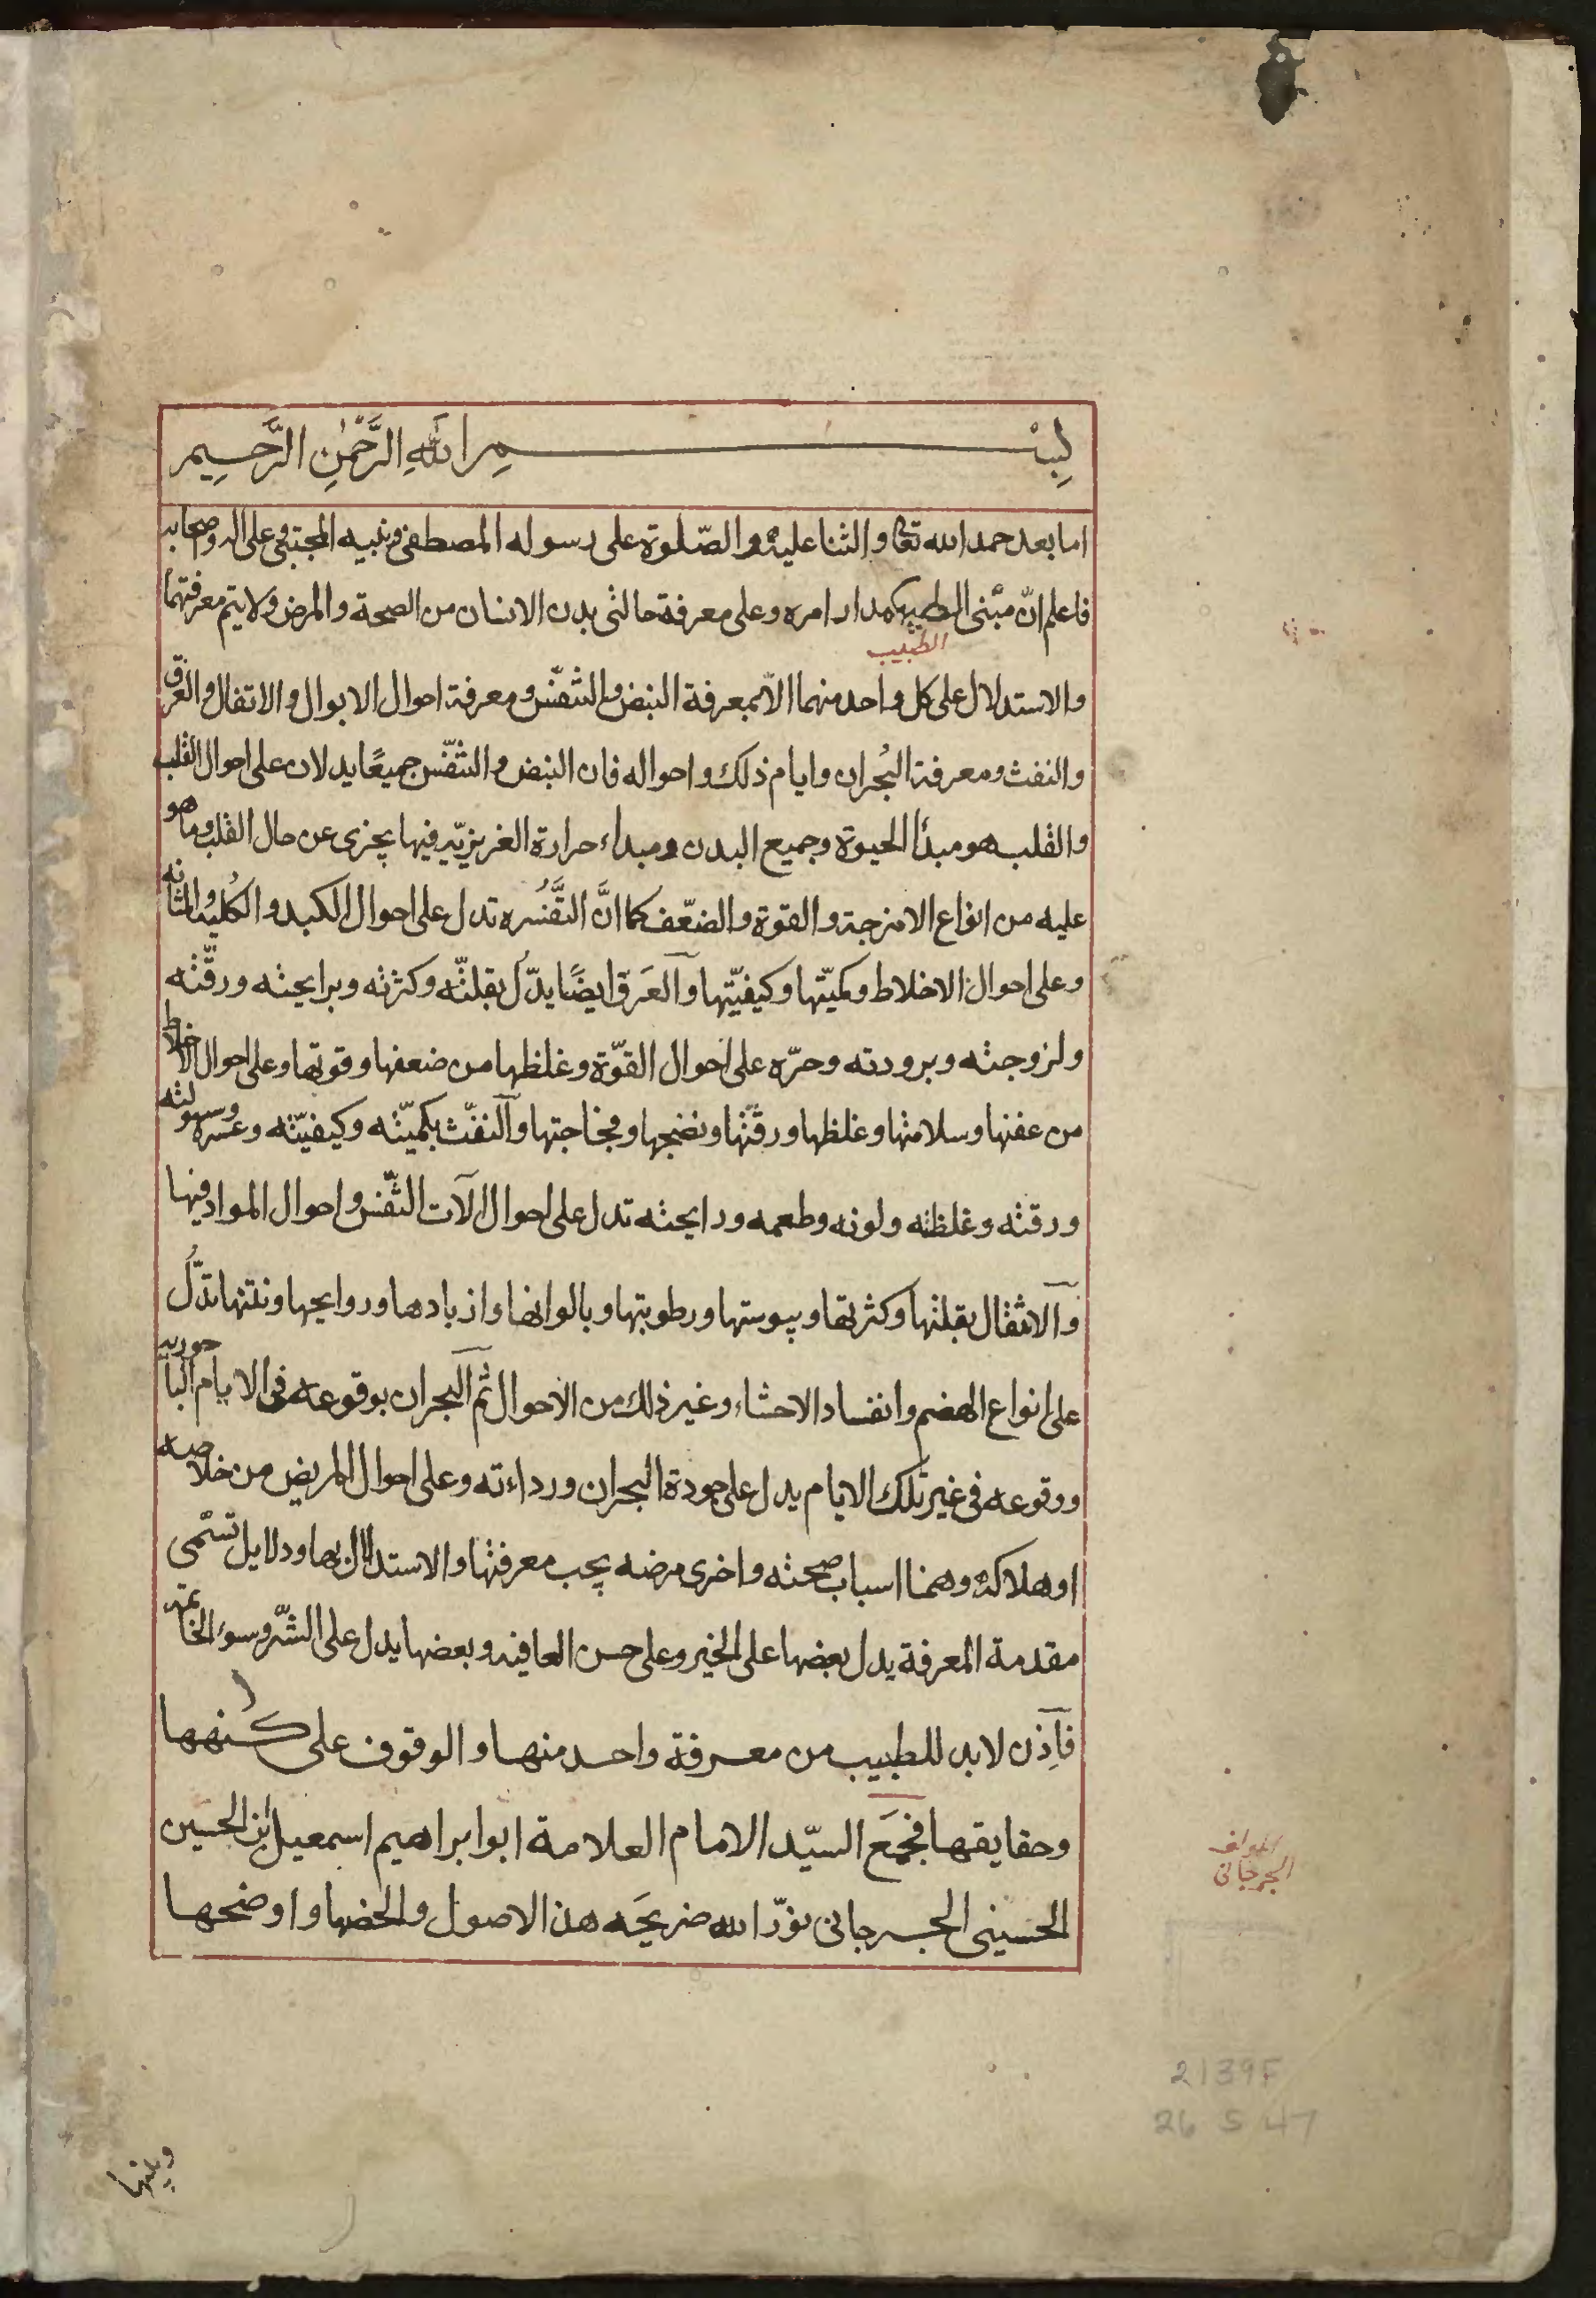 بِسْمِ اللّٰهِ الرَّحْمٰنِ الرَّحِيمِ
اما بعد حمد الله تعالى والثنا عليه والصّلوة على رسوله المصطفى ونبيه المجتبى وعلى اله وصحابه
فاعلم انّ مبنى الطبيب كمدار امره وعلى معرفة حالتى بدن الانسان من الصحة والمرض ولا يتم معرفتهما
الطبيب
والاستدلال على كل واحد منهما الّا بمعرفة النبض والتنفّس ومعرفة احوال الابوال والاتفال والعرق
والنفث ومعرفة البُحران وايام ذلك واحواله فان النبض والتنفّس جميعًا يدلان على احوال القلب
والقلب هو مبدأ الحيوة وجميع البدن ومبداء حرارة الغريزيّه فيها يجزى عن حال القلب وما هو
عليه من انواع الامزجة والقوة والضعّف كما انَّ التَّفسُره تدل على احوال الكبد والكُليه والمثانه
وعلى احوال الاخلاط وكميّتها وكيفيّتها والعَرق ايضًا يدّل بقلتّه وكثرته وبرايحته ورقّته
ولزوجته وبرودته وحرّه على احوال القوّة وغلظها من ضعفها وقوتها وعلى احوال الاخلاط
من عفنها وسلامتها وغلظها ورقّتها ونضجها وفجاجتها والنفّث بكميّته وكيفيّته وعسره وسهولته
ورقته وغلظته ولونه وطعمه ورايحته تدل على احوال الآت التّفنس واحوال المواد فيها
والاثقال بقلتها وكثرتها ويبوستها ورطوبتها وبالوانها وازبادها وروايحها ونتنها تدّلُ
على انواع الهضم وانفساد الاحشاء وغير ذلك من الاحوال ثُم البجران بوقوعه فى الايام الباحوريه
ووقوعه فى غير تلك الايام يدل على جودة البجران ورداءته وعلى احوال المريض من خلاصه
او هلاكه وهمنا اسباب صحته واخرى مرضه يجب معرفتها والاستدلال بها ودلايل تسّمى
مقدمة المعرفة يدل بعضها على الخير وعلى حسن العافيه وبعضها يدل على الشّر وسوء الخاتمه
فاِذن لابد للطبيب من معرفة واحد منها والوقوف على كُنهها
وحقايقها فجمَع السيّد الامام العلامة ابو ابراهيم اسمعيل ابن الحسين
الحسينى الجرجانى نوّر الله ضريحَه هذه الاصول ولخضها واوضحها
المولف
الجرجانى
2139F
26 5 47
وبينها